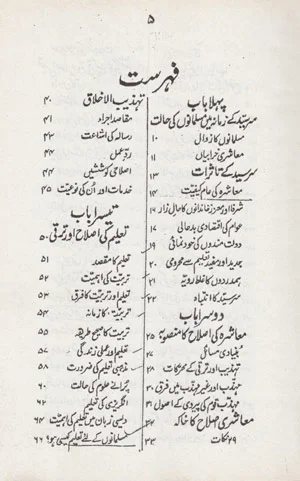 ۵
فہرست
پہلا باب
سرسید کے زمانہ میں مسلمانوں کی حالت
مسلمانوں کا زوال ۱۰
معاشرتی خرابیاں ۱۱
سرسید کے تاثرات ۱۳
معاشرہ کی عام کیفیت ۱۴
شرفا اور معزز خاندانوں کا حال زار ۱۶
عوام کی اقتصادی بدحالی ۱۷
دولت مندوں کی خود نمائی ۱۹
جدید اور مفید تعلیم سے محرومی ۲۰
ہمدردوں کا غلط رویہ ۲۱
سرسید کا انتباہ ۲۲
دوسرا باب
معاشرہ کی اصلاح کا منصوبہ ۲۵
بنیادی مسائل ۲۷
تہذیب اور ترقی کے محرکات ۲۸
مہذب اور غیر مہذب میں فرق ۳۰
مہذب قوم کی پیروی کے اصول ۳۱
معاشرتی اصلاح کا خاکہ ۳۲
۲۹ نکات ۳۳
تہذیب الاخلاق ۴۰
مقاصد اجراء ۴۱
رسالہ کی اشاعت ۴۳
ردِ عمل ۴۴
اصلاحی کوششیں ۴۴
خدمات اور اُن کی نوعیت ۴۵
تیسرا باب
تعلیم کی اصلاح اور ترقی ۵۰
تعلیم کا مقصد ۵۱
تربیت کی اہمیت ۵۲
تعلیم اور تربیت کا فرق ۵۳
تربیت کا زمانہ ۵۴
تربیت کا صحیح طریقہ ۵۵
تعلیم اور عملی زندگی ۵۷
مذہبی تعلیم کی ضرورت ۵۸
پُرانے علوم کی حالت ۶۰
انگریزی کی تعلیم ۶۲
دیسی زبان میں تعلیم کی اہمیت ۶۴
مسلمانوں کے لئے تعلیم کیسی ہو؟ ۶۶